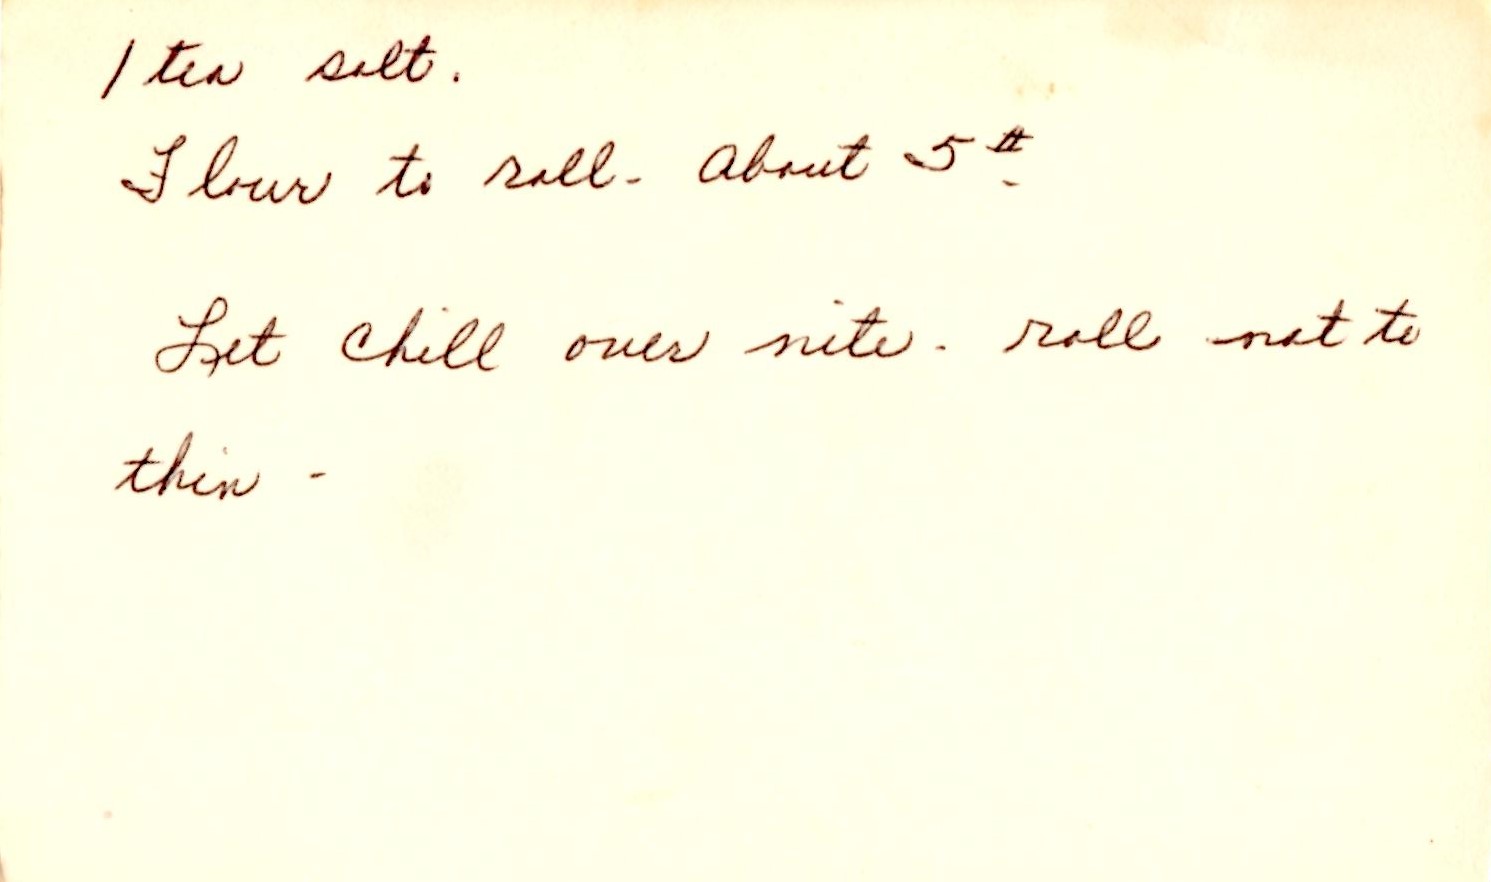 1 tea salt.
Flour to roll - About 5#
Let chill over nite - roll not to
thin -